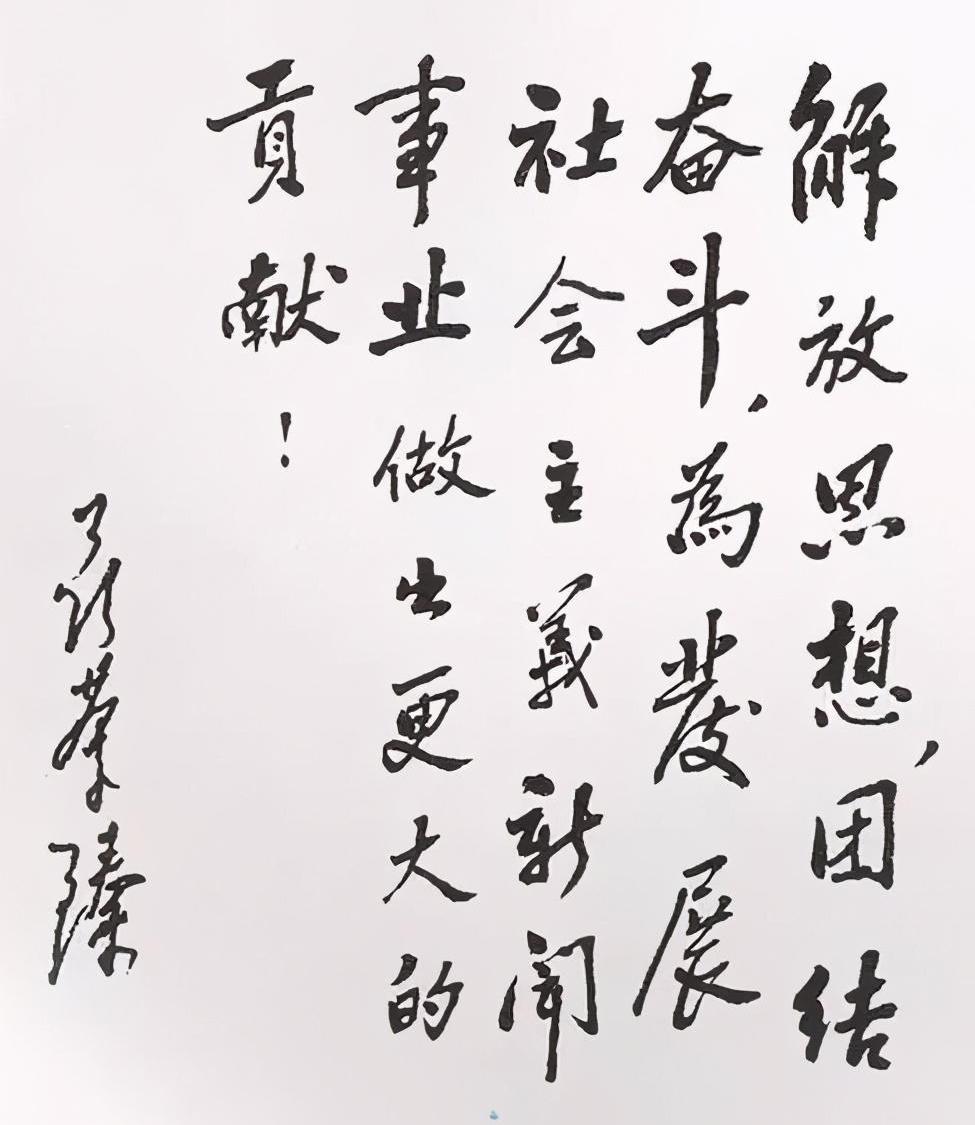 解放思想，团结
奋斗，為發展
社会主義新闻
事业做出更大的
貢献！
聂荣臻